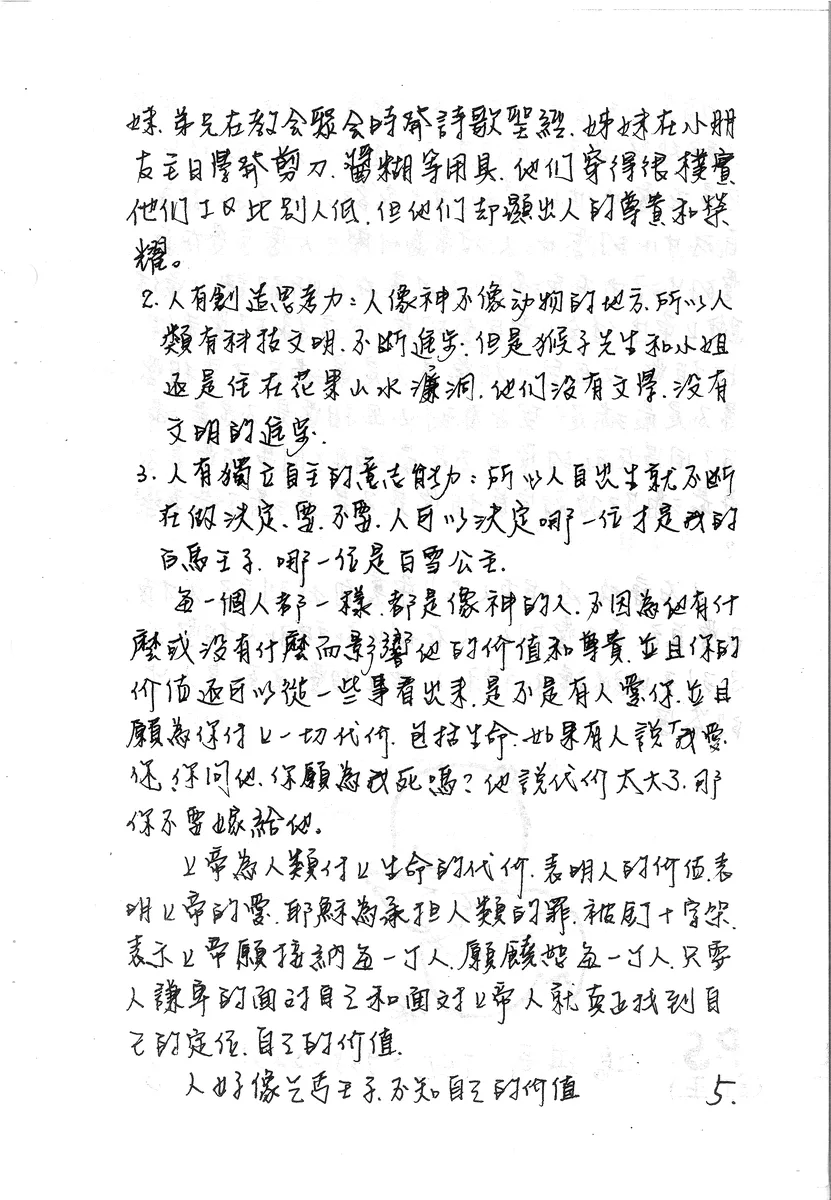 妹. 弟兄在教会聚会時發詩歌聖經. 姊妹在小朋
友主日學發剪刀. 醬糊等用具. 他们穿得很樸實
他们工只比别人低. 但他们却顯出人的尊貴和榮
耀。
2. 人有創造思考力: 人像神不像动物的地方. 所以人
類有科技文明. 不断進步. 但是猴子先生和小姐
还是住在花果山水濂洞. 他们没有文學. 没有
文明的進步.
3. 人有獨立自主的意志能力: 所以人自出生就不断
在做决定. 要. 不要. 人可以决定哪一位才是我的
白馬王子. 哪一位是白雪公主.
每一個人都一樣. 都是像神的人. 不因為他有什
麼或没有什麼而影響他的价值和尊貴. 並且你的
价值还可以從一些事看出来. 是不是有人愛你. 並且
願為你付上一切代价. 包括生命. 如果有人說「我愛
你, 你问他. 你願為我死嗎? 他説代价太大了. 那
你不要嫁給他。
上帝為人類付上生命的代价. 表明人的价值. 表
明上帝的愛. 耶穌為承担人類的罪. 被釘十字架.
表示上帝願接納每一个人. 願饒恕每一个人. 只要
人謙卑的面对自己和面对上帝人就真正找到自
己的定位. 自己的价值.
人好像乞丐王子. 不知自己的价值
5.